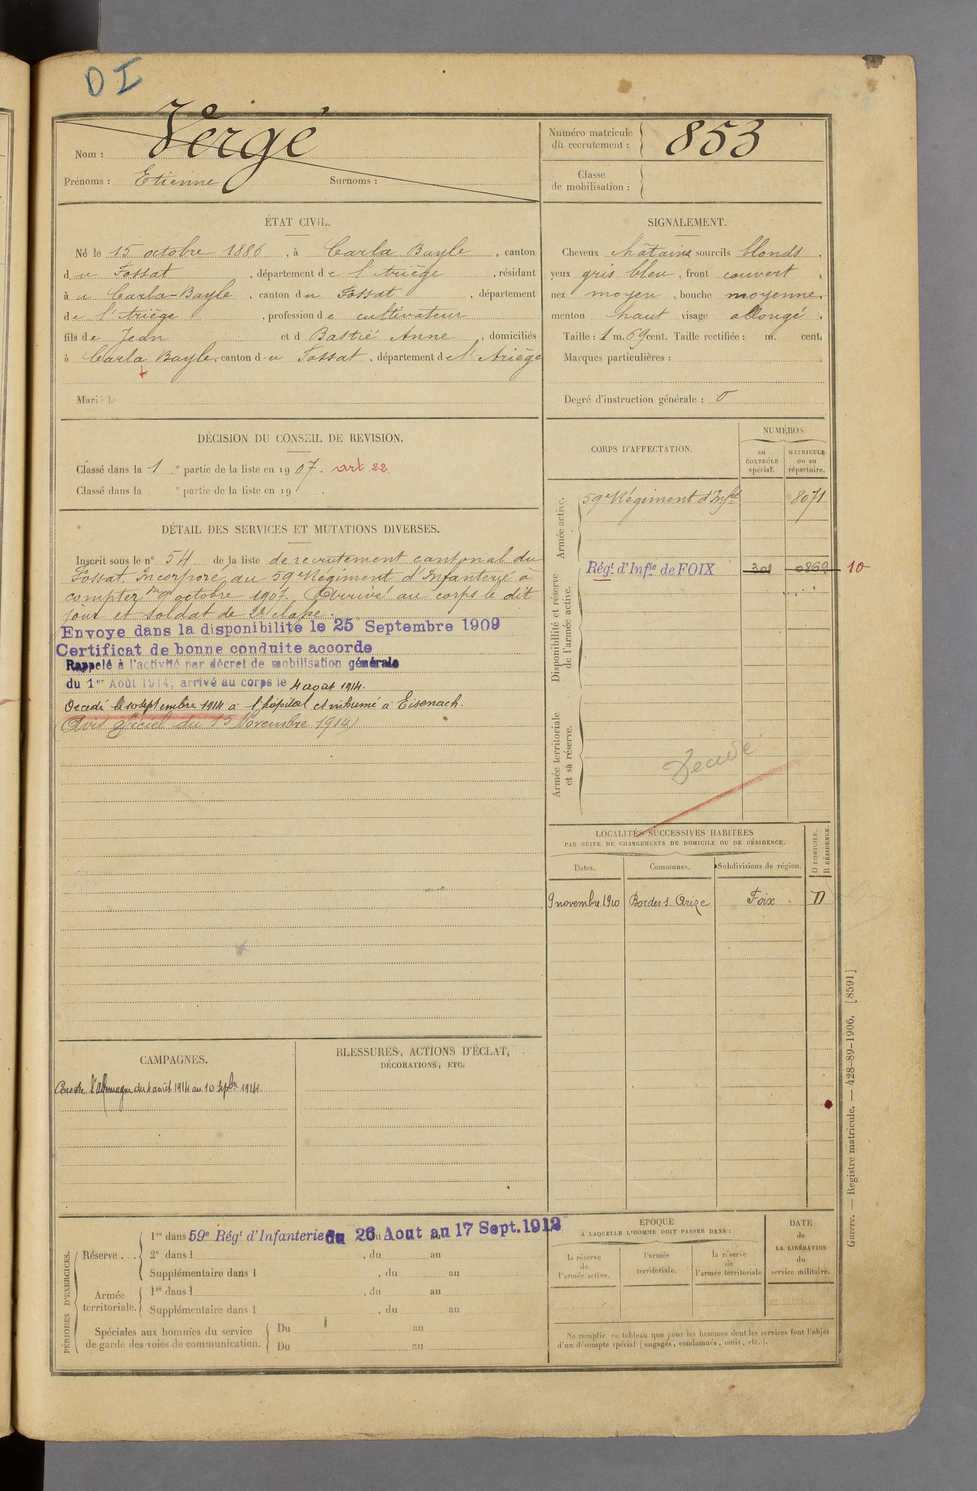 D I
Nom : Vergé
Prénoms : Etienne Surnoms :
Numéro matricule du recrutement : 853
Classe de mobilisation :
ÉTAT CIVIL.
Né le 15 octobre 1886, à Carla Bayle, canton
du Fossat, département de l'Ariège, résidant
à u Carla-Bayle, canton du Fossat, département
de l'Ariège, profession de cultivateur
fils de Jean et d Bastié Anne, domiciliés
à Carla Bayle, canton du Fossat, département de l'Ariège
Marié le
SIGNALEMENT.
Cheveux châtains sourcils blonds,
yeux gris bleu, front couvert,
nez moyen, bouche moyenne,
menton haut visage allongé.
Taille : 1 m. 69 cent. Taille rectifiée : m. cent.
Marques particulières :
Degré d'instruction générale : 0
DÉCISION DU CONSEIL DE REVISION.
Classé dans la 1e partie de la liste en 1907. art 22
Classé dans la e partie de la liste en 19 .
DÉTAIL DES SERVICES ET MUTATIONS DIVERSES.
Inscrit sous le n° 54 de la liste de recrutement cantonal du
Fossat. Incorporé au 59e Régiment d'Infanterie à
compter du octobre 1907. Arrivé au corps le dit
jour et soldat de 2e classe.
Envoye dans la disponibilité le 25 Septembre 1909
Certificat de bonne conduite accorde
Rappelé à l'activité par décret de mobilisation générale
du 1er Août 1914, arrivé au corps le 4 août 1914.
Décédé le 10 septembre 1914 à l'hôpital et inhumé à Eisenach.
(Avis officiel du 15 Novembre 1914)
CORPS D'AFFECTATION.
NUMÉROS
au CONTRÔLE spécial.
MATRICULE ou au répertoire.
Armée active.
59e Régiment d'Infie 8071
Disponibilité et réserve de l'armée active.
Régt. d'Infie de FOIX 301 0869 10
Armée territoriale et sa réserve.
Décédé
LOCALITÉS SUCCESSIVES HABITÉES
PAR SUITE DE CHANGEMENTS DE DOMICILE OU DE RÉSIDENCE.
Dates. Communes. Subdivisions de région. D DOMICILE. R RÉSIDENCE.
9 novembre 1910 Bordes s. Arize Foix D
CAMPAGNES.
Contre l'Allemagne du 4 août 1914 au 10 Septbre 1914.
BLESSURES, ACTIONS D'ÉCLAT,
DÉCORATIONS, ETC.
PÉRIODES D'EXERCICES.
Réserve ...
1re dans 59e Régt d'Infanterie du 26 Aout au 17 Sept. 1912
2e dans l , du au
Supplémentaire dans l , du au
Armée territoriale.
1re dans l , du au
Supplémentaire dans l , du au
Spéciales aux hommes du service
de garde des voies de communication.
Du au
Du au
ÉPOQUE
À LAQUELLE L'HOMME DOIT PASSER DANS :
la réserve de l'armée active.
l'armée territoriale.
la réserve de l'armée territoriale
DATE
de
LA LIBÉRATION
du
service militaire.
Ne remplir ce tableau que pour les hommes dont les services font l'objet
d'un décompte spécial (engagés, condamnés, omis, etc.).
Guerre. — Registre matricule. — 428-89-1906. [8591]